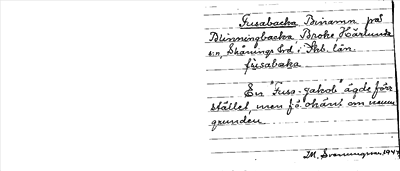 Fusabacka Binamn på
Blinningbacka Broke Härlunda
sn, Skånings hd i Skb. län.
fusabaka
En "Fuss-Jakob" ägde förr
stället, men f.ö. okänt om namn
grunden.
M. Svenungsson 1947